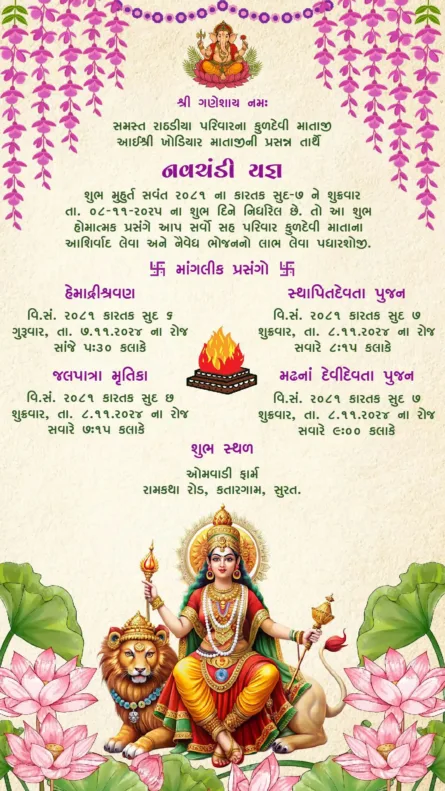 શ્રી ગણેશાય નમઃ
સમસ્ત રાઠડીયા પરિવારના કુળદેવી માતાજી
આઈશ્રી ખોડિયાર માતાજીની પ્રસન્ન તાર્થે
નવચંડી યજ્ઞ
શુભ મુહુર્ત સવંત ૨૦૮૧ ના કારતક સુદ-૭ ને શુક્રવાર
તા. ૦૮-૧૧-૨૦૨૫ ના શુભ દિને નિર્ધારિલ છે. તો આ શુભ
હોમાત્મક પ્રસંગે આપ સર્વો સહ પરિવાર કુળદેવી માતાના
આશિર્વાદ લેવા અને નૈવેધ ભોજનનો લાભ લેવા પધારશોજી.
卐 માંગલીક પ્રસંગો 卐
હેમાદ્રીશ્રવણ
વિ.સં. ૨૦૮૧ કારતક સુદ ૬
ગુરૂવાર, તા. ૭.૧૧.૨૦૨૪ ના રોજ
સાંજે ૫ઃ૩૦ કલાકે
સ્થાપિતદેવતા પુજન
વિ.સં. ૨૦૮૧ કારતક સુદ ૭
શુક્રવાર, તા. ૮.૧૧.૨૦૨૪ ના રોજ
સવારે ૮ઃ૧૫ કલાકે
જલપાત્રા મૃતિકા
વિ.સં. ૨૦૮૧ કારતક સુદ છ
શુક્રવાર, તા. ૮.૧૧.૨૦૨૪ ના રોજ
સવારે ૭ઃ૧૫ કલાકે
મઢનાં દેવીદેવતા પુજન
વિ.સં. ૨૦૮૧ કારતક સુદ ૭
શુક્રવાર, તા. ૮.૧૧.૨૦૨૪ ના રોજ
સવારે ૯ઃ૦૦ કલાકે
શુભ સ્થળ
ઓમવાડી ફાર્મ
રામકથા રોડ, કતારગામ, સુરત.